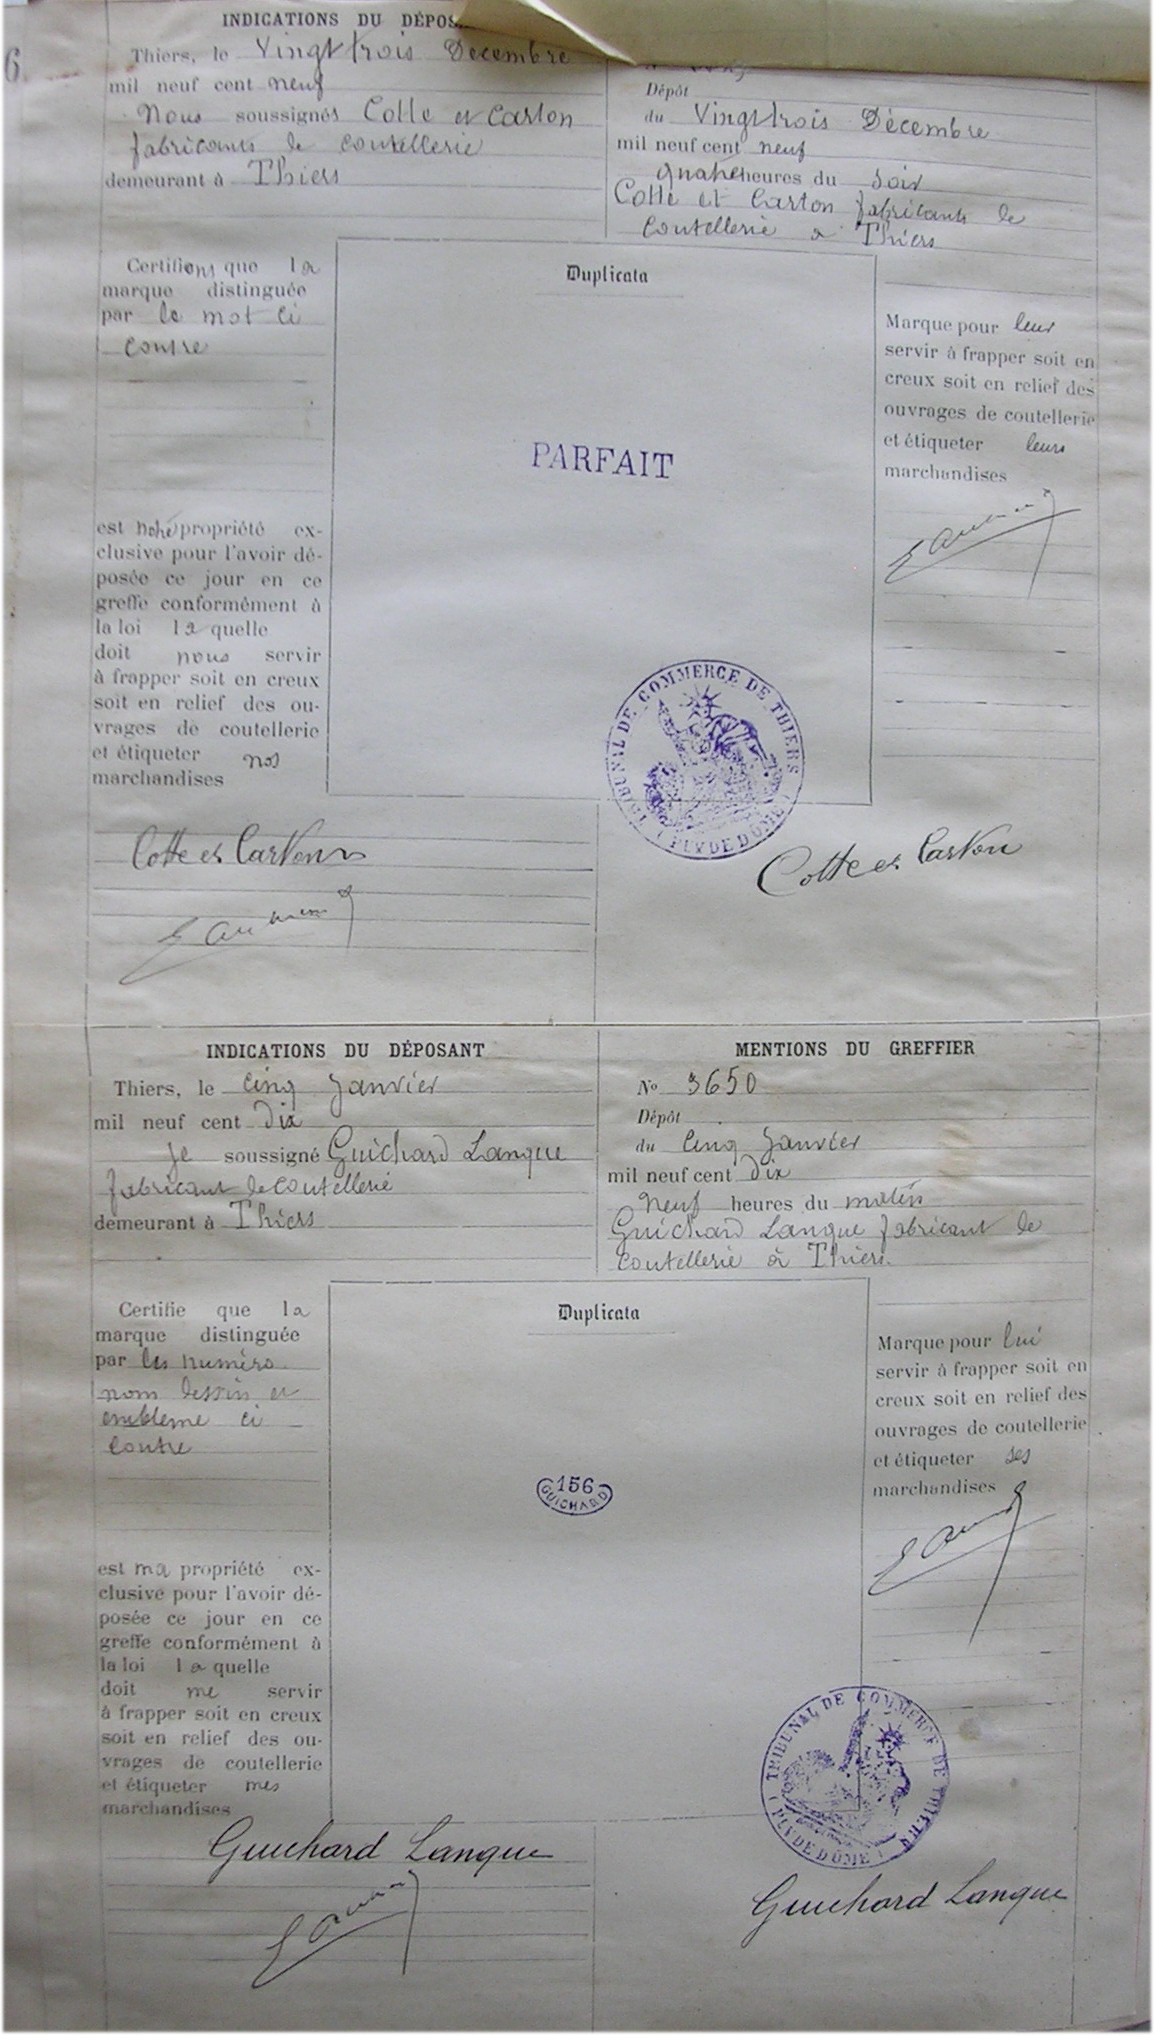 6
INDICATIONS DU DÉPOS
Thiers, le Vingt trois Décembre
mil neuf cent neuf
Nous soussignés Cotte et Carton
fabricants de coutellerie
demeurant à Thiers
Dépôt
du Vingt trois Décembre
mil neuf cent neuf
quatre heures du soir
Cotte et Carton fabricants de
coutellerie à Thiers
Certifions que la
marque distinguée
par le mot ci
contre
est notre propriété ex-
clusive pour l'avoir dé-
posée ce jour en ce
greffe conformément à
la loi laquelle
doit nous servir
à frapper soit en creux
soit en relief des ou-
vrages de coutellerie
et étiqueter nos
marchandises
Duplicata
PARFAIT
TRIBUNAL DE COMMERCE DE THIERS
(PUY DE DÔME)
Marque pour leur
servir à frapper soit en
creux soit en relief des
ouvrages de coutellerie
et étiqueter leurs
marchandises
Cotte et Carton
Cotte et Carton
INDICATIONS DU DÉPOSANT
Thiers, le cinq Janvier
mil neuf cent Dix
Je soussigné Guichard Lanque
fabricant de coutellerie
demeurant à Thiers
MENTIONS DU GREFFIER
No 3650
Dépôt
du cinq Janvier
mil neuf cent Dix
neuf heures du matin
Guichard Lanque fabricant de
coutellerie à Thiers.
Certifie que la
marque distinguée
par les numéro
nom dessin et
emblème ci
contre
est ma propriété ex-
clusive pour l'avoir dé-
posée ce jour en ce
greffe conformément à
la loi laquelle
doit me servir
à frapper soit en creux
soit en relief des ou-
vrages de coutellerie
et étiqueter mes
marchandises
Duplicata
156
GUICHARD
Marque pour lui
servir à frapper soit en
creux soit en relief des
ouvrages de coutellerie
et étiqueter ses
marchandises
TRIBUNAL DE COMMERCE DE THIERS
(PUY DE DÔME)
Guichard Lanque
Guichard Lanque